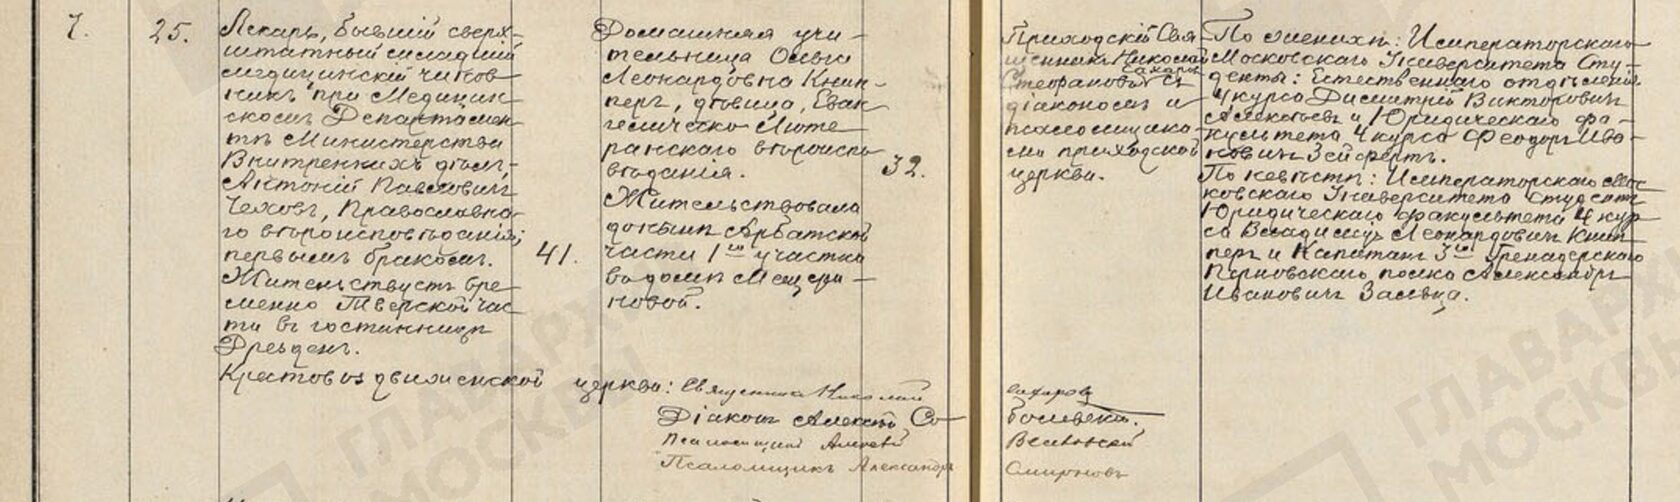 7.
25.
Лекарь, бывший сверх-
штатный младший
медицинский чинов-
никъ при Медицин-
скомъ Департамен-
тѣ Министерства
Внутреннихъ дѣлъ,
Антоній Павловичъ
Чеховъ, Православна-
го вѣроисповѣданія;
первымъ бракомъ.
Жительствуетъ вре-
менно Тверской час-
ти въ гостинницѣ
Дрезденъ.
41.
Домашняя учи-
тельница Ольга
Леонардовна Книп-
перъ, дѣвица, Еван-
гелическо-Люте-
ранскаго вѣроиспо-
вѣданія.
Жительствовала
донынѣ Арбатской
части 1го участка
въ домѣ Мещери-
новой.
32.
Приходскій Свя-
щенникъ Николай
Стефановъ Сахаровъ съ
діакономъ и
псаломщика-
ми приходской
церкви.
По женихѣ: Императорскаго
Московскаго Университета Сту-
денты: Естественнаго отдѣленія
4 курса Димитрій Викторовичъ
Алексѣевъ и Юридическаго фа-
культета 4 курса Феодоръ Ива-
новичъ Зейфертъ.
По невѣстѣ: Императорскаго Мос-
ковскаго Университета студентъ
Юридическаго факультета 4 кур-
са Владиміръ Леонардовичъ Книп-
перъ и Капитанъ 3го Гренадерскаго
Перновскаго полка Александръ
Ивановичъ Зальца.
Крестовоздвиженской церкви: Священникъ Николай Сахаровъ
Діаконъ Алексѣй
Псаломщикъ
Псаломщикъ Александръ Смирновъ
ГЛАВАРХИВ
МОСКВЫ
ГЛАВАРХ
МОСКВЫ